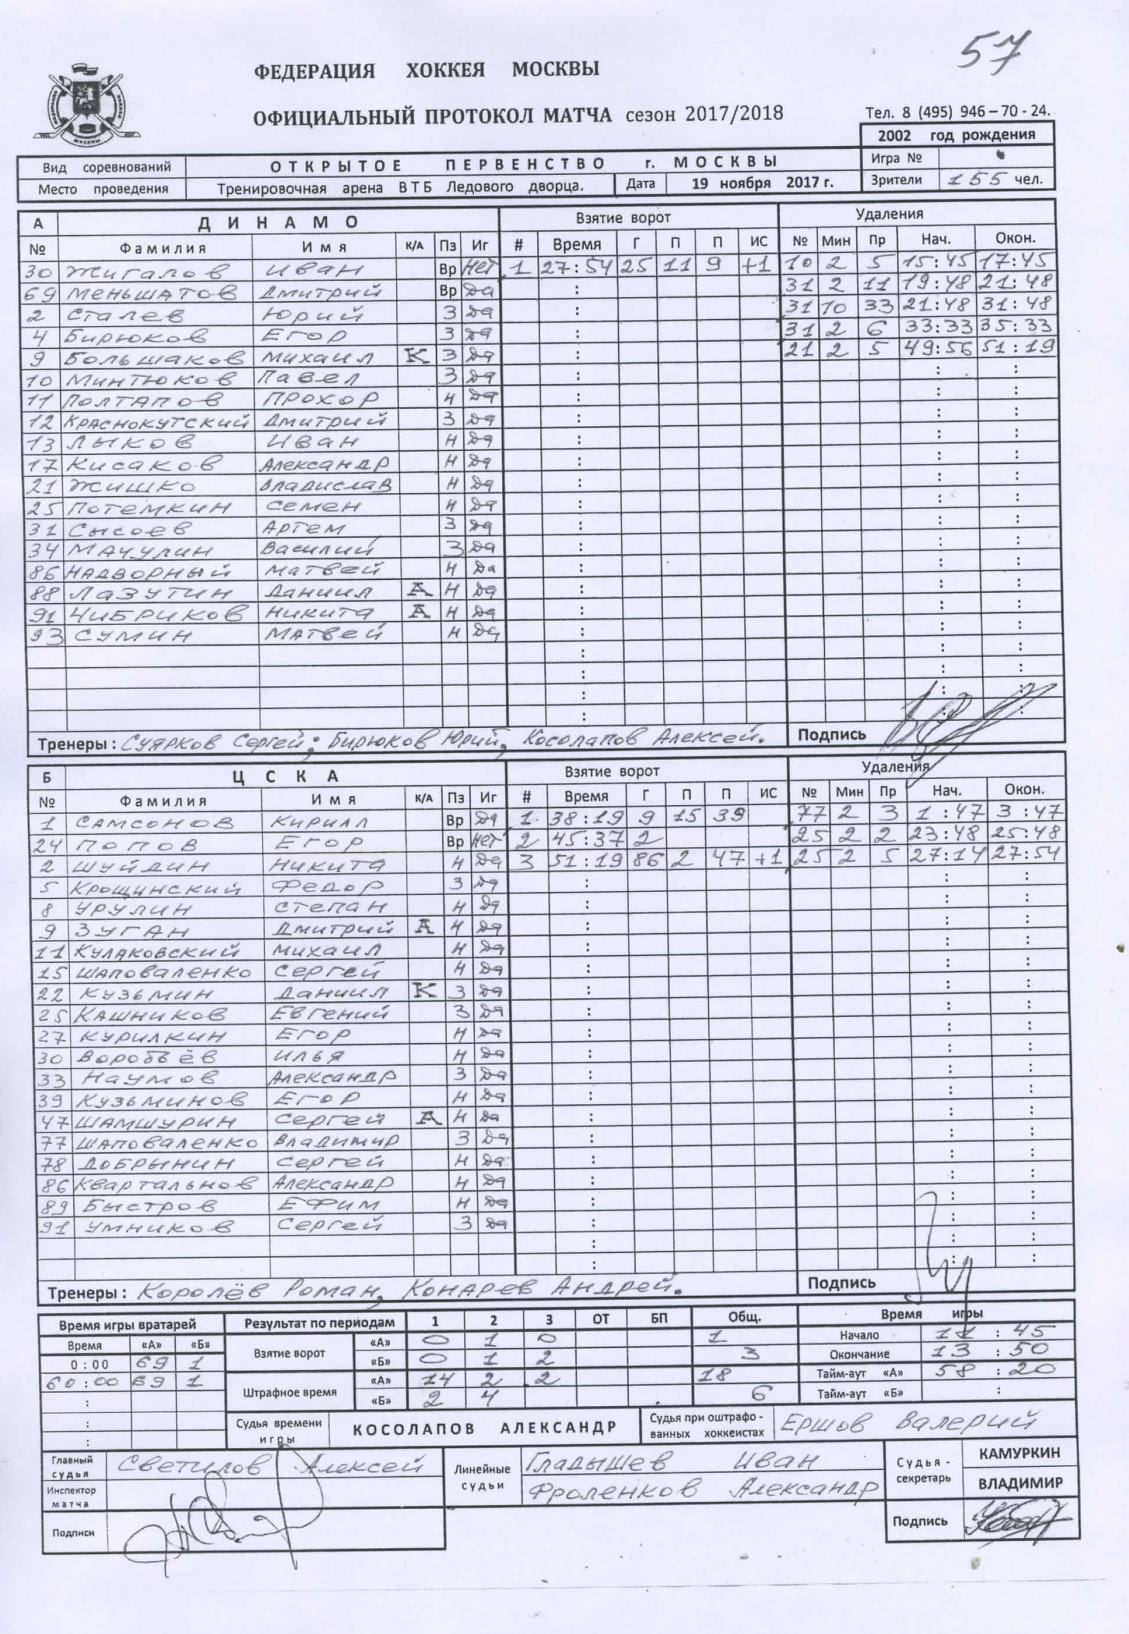 57
ФЕДЕРАЦИЯ ХОККЕЯ МОСКВЫ
ОФИЦИАЛЬНЫЙ ПРОТОКОЛ МАТЧА сезон 2017/2018
Тел. 8 (495) 946 – 70 - 24.
2002 год рождения
Вид соревнований ОТКРЫТОЕ ПЕРВЕНСТВО г. МОСКВЫ Игра №
Место проведения Тренировочная арена ВТБ Ледового дворца. Дата 19 ноября 2017 г. Зрители 155 чел.
А ДИНАМО Взятие ворот Удаления
№ Фамилия Имя К/А Пз Иг # Время Г П П ИС № Мин Пр Нач. Окон.
30 Жигалов Иван Вр Нет 1 27:54 25 11 9 +1 10 2 5 15:45 17:45
69 Меньшатов Дмитрий Вр Да : 31 2 11 19:48 21:48
2 Сталев Юрий З Да : 31 10 33 21:48 31:48
4 Бирюков Егор З Да : 31 2 6 33:33 35:33
9 Большаков Михаил К З Да : 21 2 5 49:56 51:19
10 Минтюков Павел З Да : : :
11 Полтапов Прохор Н Да : : :
12 Краснокутский Дмитрий З Да : : :
13 Лыков Иван Н Да : : :
17 Кисаков Александр Н Да : : :
21 Жишко Владислав Н Да : : :
25 Потемкин Семен Н Да : : :
31 Сысоев Артем З Да : : :
34 Мачулин Василий З Да : : :
86 Надворный Матвей Н Да : : :
88 Лазутин Даниил А Н Да : : :
91 Чибриков Никита А Н Да : : :
93 Сумин Матвей Н Да : : :
: : :
: : :
: : :
: : :
Тренеры : Суярков Сергей; Бирюков Юрий, Косолапов Алексей. Подпись
Б ЦСКА Взятие ворот Удаления
№ Фамилия Имя К/А Пз Иг # Время Г П П ИС № Мин Пр Нач. Окон.
1 Самсонов Кирилл Вр Да 1 38:19 9 15 39 77 2 3 1:47 3:47
24 Попов Егор Вр Нет 2 45:37 2 25 2 2 23:48 25:48
2 Шуйдин Никита Н Да 3 51:19 86 2 47 +1 25 2 5 27:14 27:54
5 Крощинский Федор З Да : : :
8 Урулин Степан Н Да : : :
9 Зуган Дмитрий А Н Да : : :
11 Кулаковский Михаил Н Да : : :
15 Шаповаленко Сергей Н Да : : :
22 Кузьмин Даниил К З Да : : :
25 Кашников Евгений З Да : : :
27 Курилкин Егор Н Да : : :
30 Воробьёв Илья Н Да : : :
33 Наумов Александр З Да : : :
39 Кузьминов Егор Н Да : : :
47 Шамшурин Сергей А Н Да : : :
77 Шаповаленко Владимир З Да : : :
78 Добрынин Сергей Н Да : : :
86 Квартальнов Александр Н Да : : :
89 Быстров Ефим Н Да : : :
91 Умников Сергей З Да : : :
: : :
: : :
Тренеры : Королёв Роман, Конарев Андрей. Подпись
Время игры вратарей Результат по периодам 1 2 3 ОТ БП Общ. Время игры
Время «А» «Б» Взятие ворот «А» 0 1 0 1 Начало 11 : 45
0 : 00 69 1 «Б» 0 1 2 3 Окончание 13 : 50
60 : 00 69 1 Штрафное время «А» 14 2 2 18 Тайм-аут «А» 58 : 20
: «Б» 2 4 6 Тайм-аут «Б» :
:
: Судья времени игры КОСОЛАПОВ АЛЕКСАНДР Судья при оштрафо - ванных хоккеистах Ершов Валерий
Главный судья Светилов Алексей Линейные судьи Гладышев Иван Судья - секретарь КАМУРКИН
Инспектор матча Фроленков Александр ВЛАДИМИР
Подписи Подпись